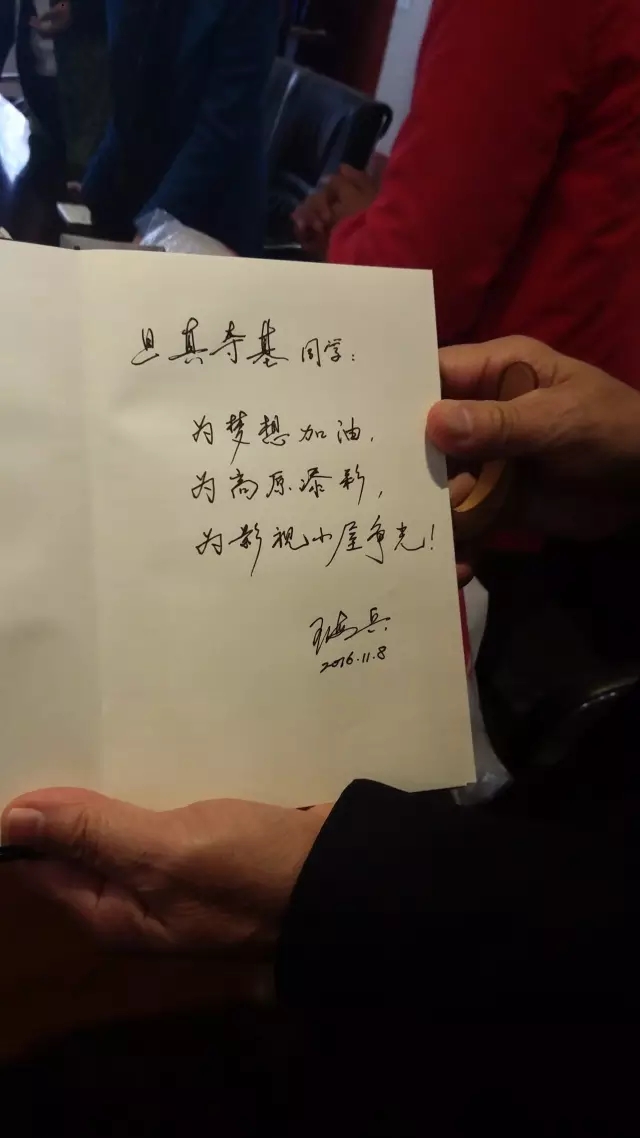 旦真夺基同学：
为梦想加油，
为高原添彩，
为影视小屋争光！
王海兵
2016.11.8